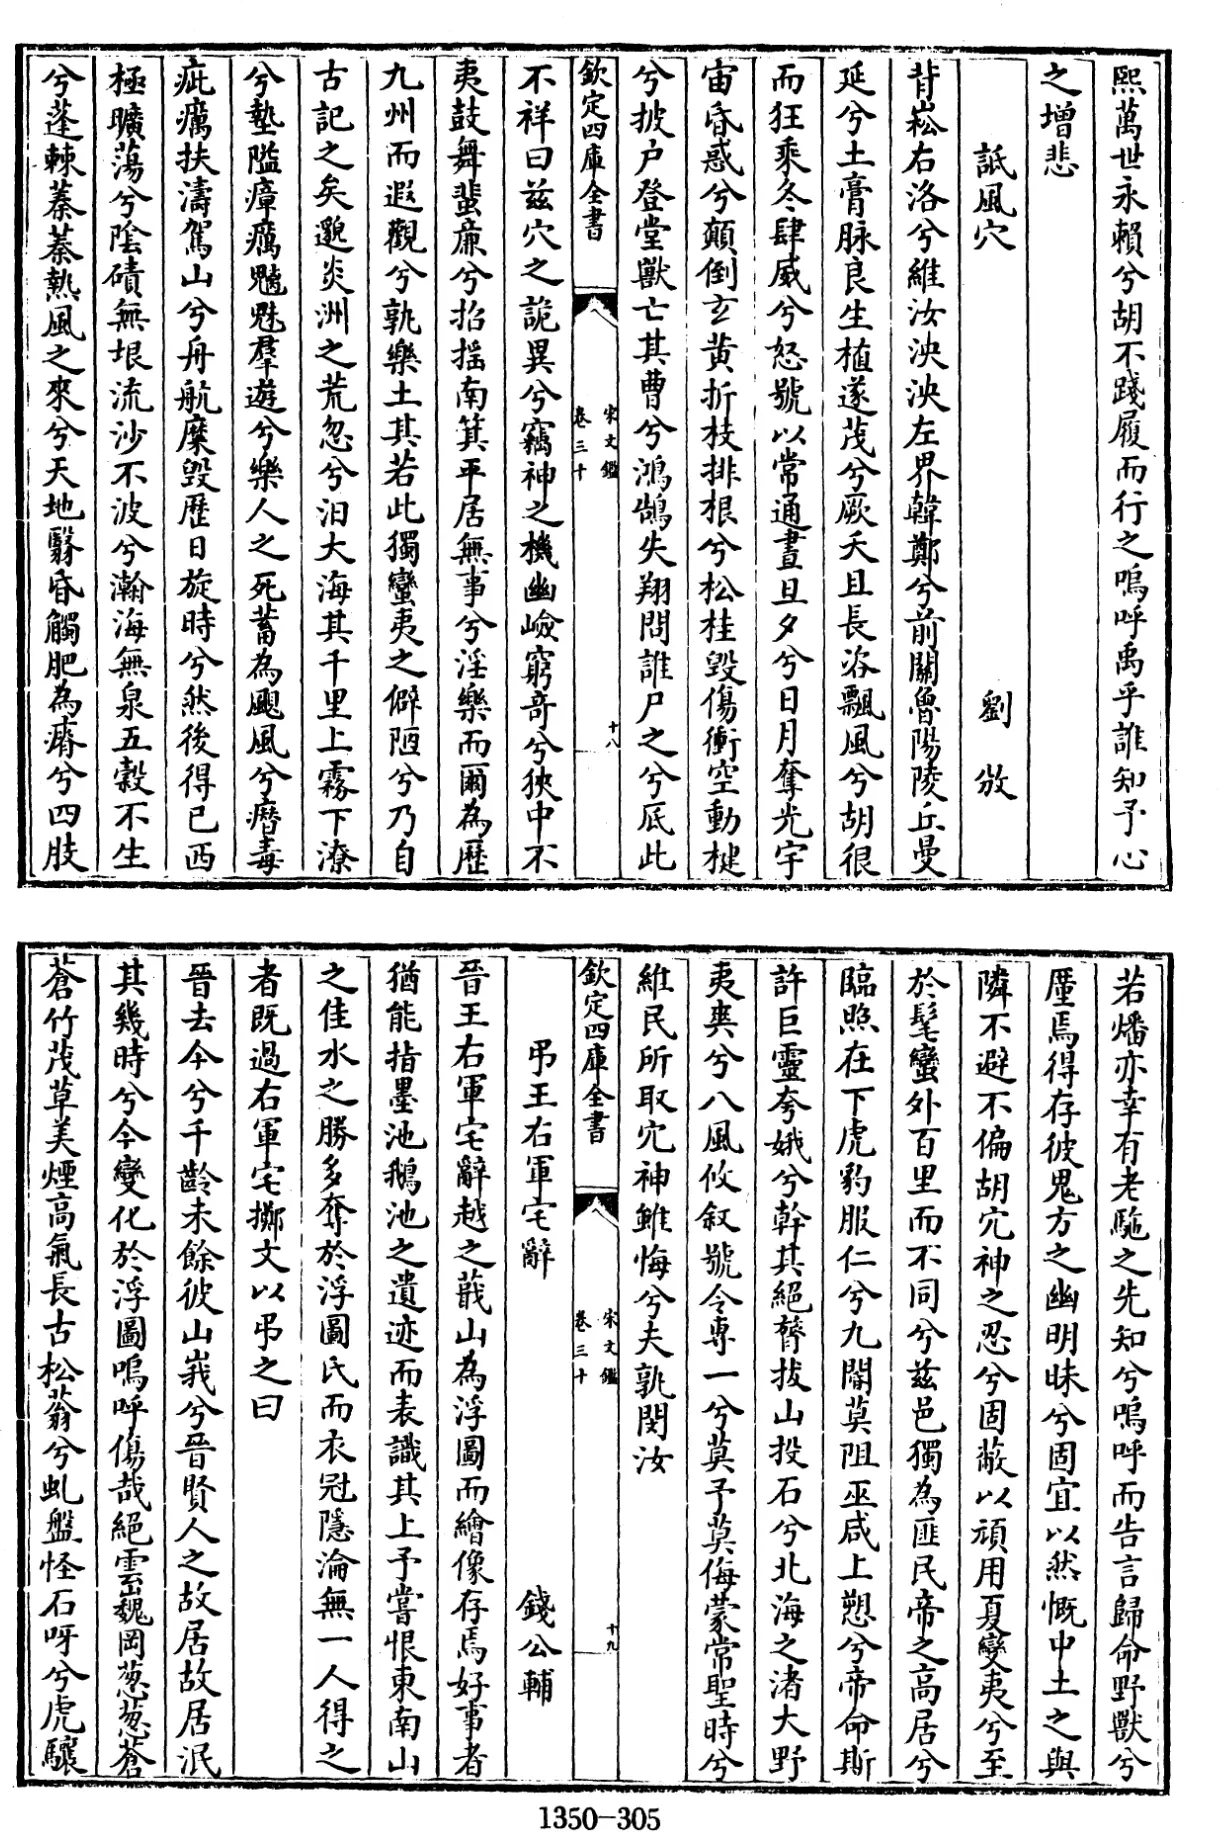 熙萬世永賴兮胡不踐履而行之嗚呼禹乎誰知予心
之增悲
詆風穴 劉攽
背崧右洛兮維汝泱泱左界韓鄭兮前關魯陽陵丘曼
延兮土膏脉良生植遂茂兮厥夭且長沴飄風兮胡很
而狂乘冬肆威兮怒號以常通晝旦夕兮日月奪光宇
宙昏惑兮顛倒玄黄折枝排根兮松桂毀傷衝空動楗
兮披户登堂獸亡其曹兮鴻鵠失翔問誰尸之兮厎此
欽定四庫全書
宋文鑑
卷三十
十八
不祥曰兹穴之詭異兮竊神之機幽嶮窮竒兮狹中不
夷鼓舞蜚廉兮招摇南箕平居無事兮淫樂而爾為歴
九州而遐觀兮孰樂土其若此獨蠻夷之僻陋兮乃自
古記之矣邈炎洲之荒忽兮汨大海其千里上霧下潦
兮墊隘瘴癘魑魅羣遊兮樂人之死蓄為颶風兮㿊毒
疵癘扶濤駕山兮舟航糜毀歴日旋時兮然後得已西
極曠蕩兮陰磧無垠流沙不波兮瀚海無泉五穀不生
兮蓬棘蓁蓁熱風之來兮天地翳昏觸肥為瘠兮四肢
若燔亦幸有老駞之先知兮嗚呼而告言歸命野獸兮
厪焉得存彼鬼方之幽明昧兮固宜以然慨中土之與
隣不避不偏胡穴神之忍兮固蔽以頑用夏變夷兮至
於髦蠻外百里而不同兮兹邑獨為匪民帝之高居兮
臨照在下虎豹服仁兮九閽莫阻巫咸上愬兮帝命斯
許巨靈夸娥兮幹其絕膂拔山投石兮北海之渚大野
夷爽兮八風攸叙號令專一兮莫予莫侮蒙常聖時兮
維民所取穴神雖悔兮夫孰閔汝
欽定四庫全書
宋文鑑
卷三十
十九
弔王右軍宅辭 錢公輔
晉王右軍宅辭越之蕺山為浮圖而繪像存焉好事者
猶能指墨池鵝池之遺迹而表識其上予嘗恨東南山
之佳水之勝多奪於浮圖氏而衣冠隱淪無一人得之
者既過右軍宅擲文以弔之曰
晉去今兮千齡未餘彼山峩兮晉賢人之故居故居泯
其幾時兮今變化於浮圖嗚呼傷哉絕雲巍岡葱葱蒼
蒼竹茂草美煙高氣長古松蓊兮虬盤怪石呀兮虎驤
1350-305